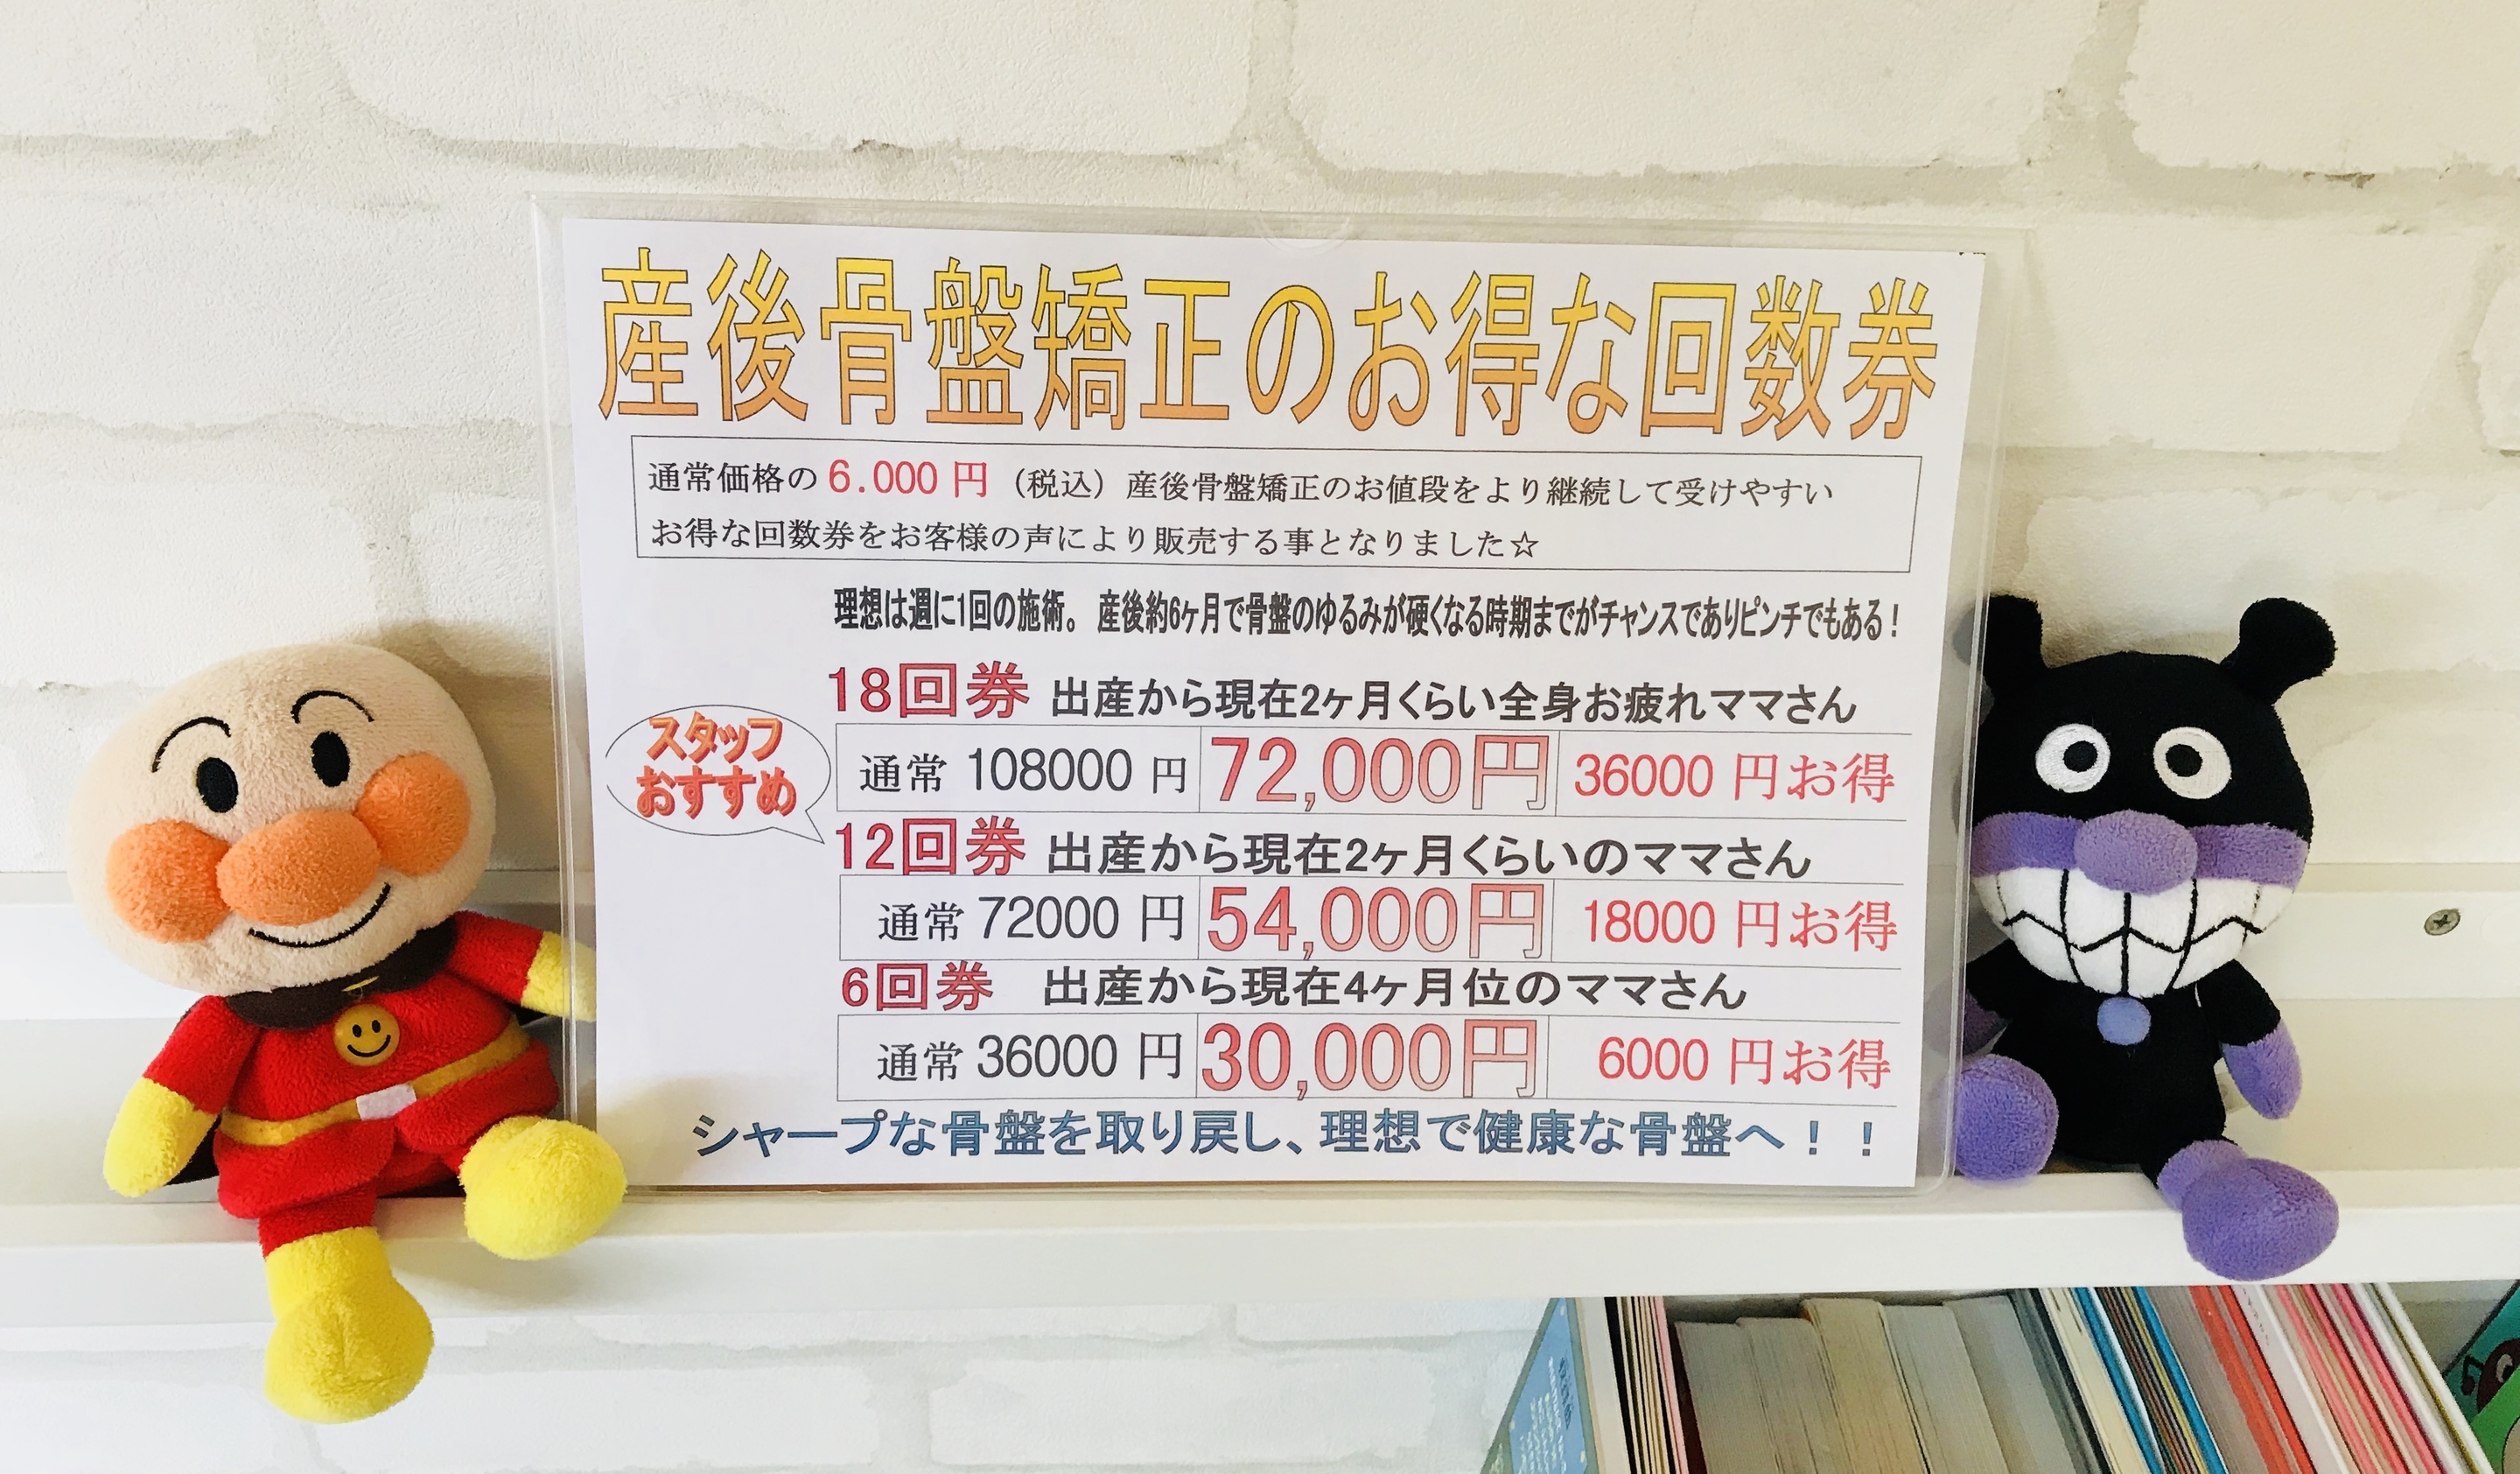 産後骨盤矯正のお得な回数券
通常価格の 6.000 円（税込）産後骨盤矯正のお値段をより継続して受けやすい
お得な回数券をお客様の声により販売する事となりました☆
理想は週に1回の施術。 産後約6ヶ月で骨盤のゆるみが硬くなる時期までがチャンスでありピンチでもある！
18回券 出産から現在2ヶ月くらい全身お疲れママさん
スタッフ
おすすめ
通常 108000 円 72,000円 36000 円お得
12回券 出産から現在2ヶ月くらいのママさん
通常 72000 円 54,000円 18000 円お得
6回券 出産から現在4ヶ月位のママさん
通常 36000 円 30,000円 6000 円お得
シャープな骨盤を取り戻し、理想で健康な骨盤へ！！